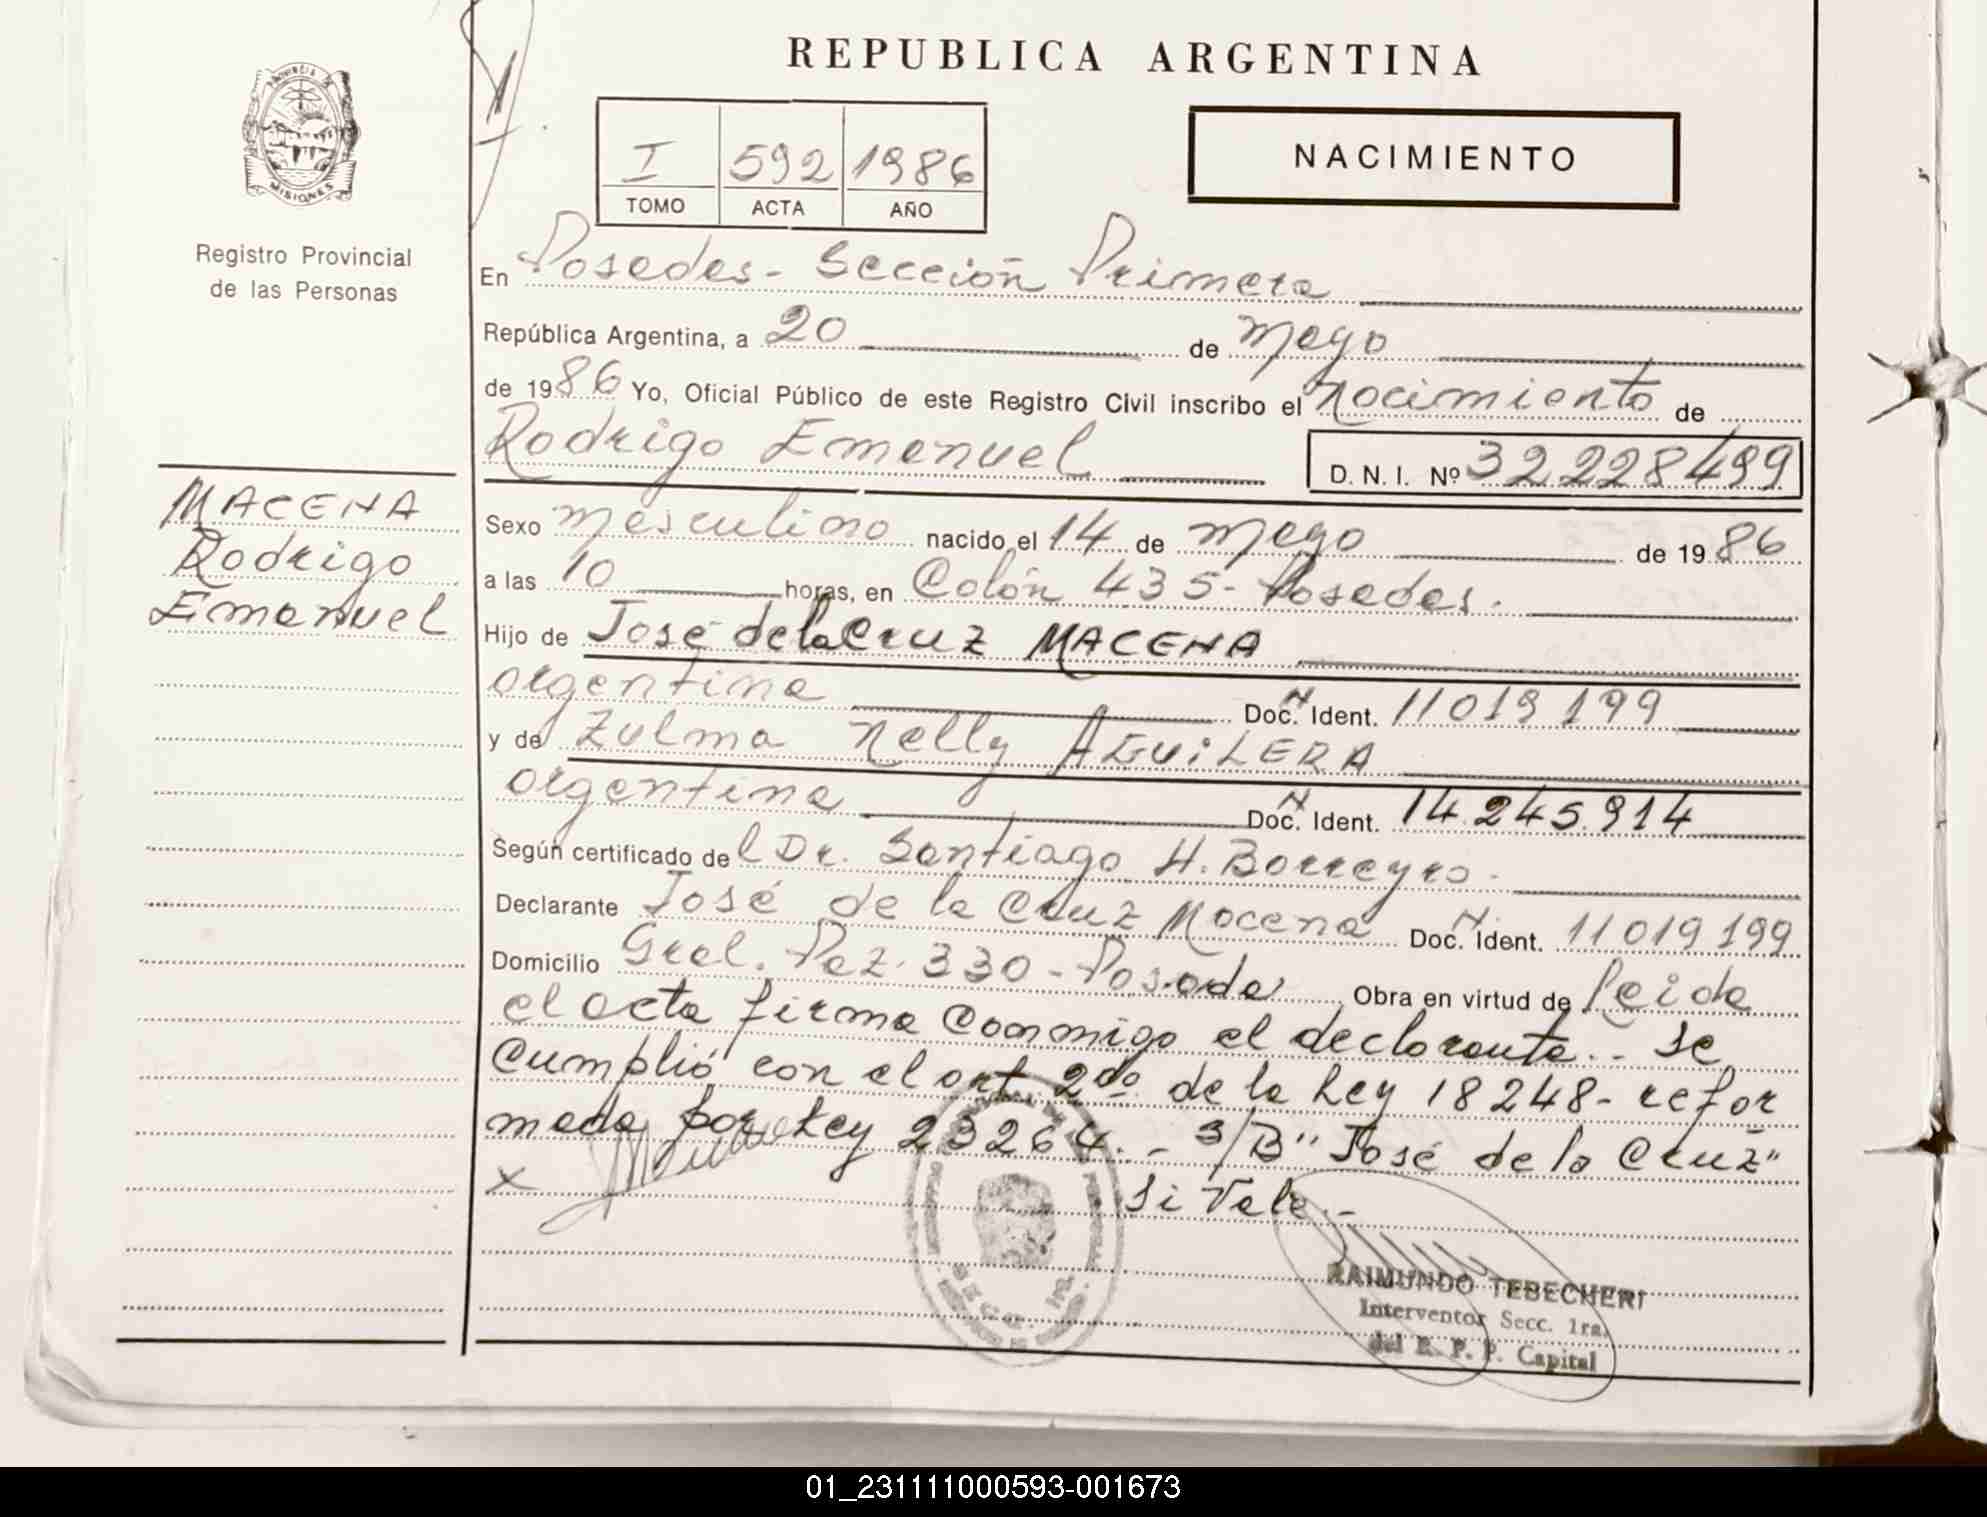 REPUBLICA ARGENTINA
PROVINCIA DE
MISIONES
Registro Provincial
de las Personas
I 592 1986
TOMO ACTA AÑO
NACIMIENTO
En Posadas - Sección Primera
República Argentina, a 20 de mayo
de 1986 Yo, Oficial Público de este Registro Civil inscribo el nacimiento de
Rodrigo Emanuel D. N. I. Nº 32228499
MACENA
Rodrigo
Emanuel
Sexo masculino nacido el 14 de mayo de 1986
a las 10 horas, en Colón 435 - Posadas.
Hijo de José de la Cruz MACENA
argentina Doc. Ident. 11 019 199
y de Zulma Nelly AGUILERA
argentina Doc. Ident. 14.245.914
Según certificado del Dr. Santiago H. Borreyro -
Declarante José de la Cruz Macena Doc. Ident. 11 019 199
Domicilio Gral. Paz. 330 - Posadas Obra en virtud de leida
el acta firma conmigo el declarante.. Se
cumplió con el art 2do de la Ley 18248 - refor
mada por Ley 23264. - S/B "José de la Cruz"
x Si Vale. -
RAIMUNDO TEBECHERI
Interventor Secc. 1ra.
del R. P. P. Capital
01_231111000593-001673